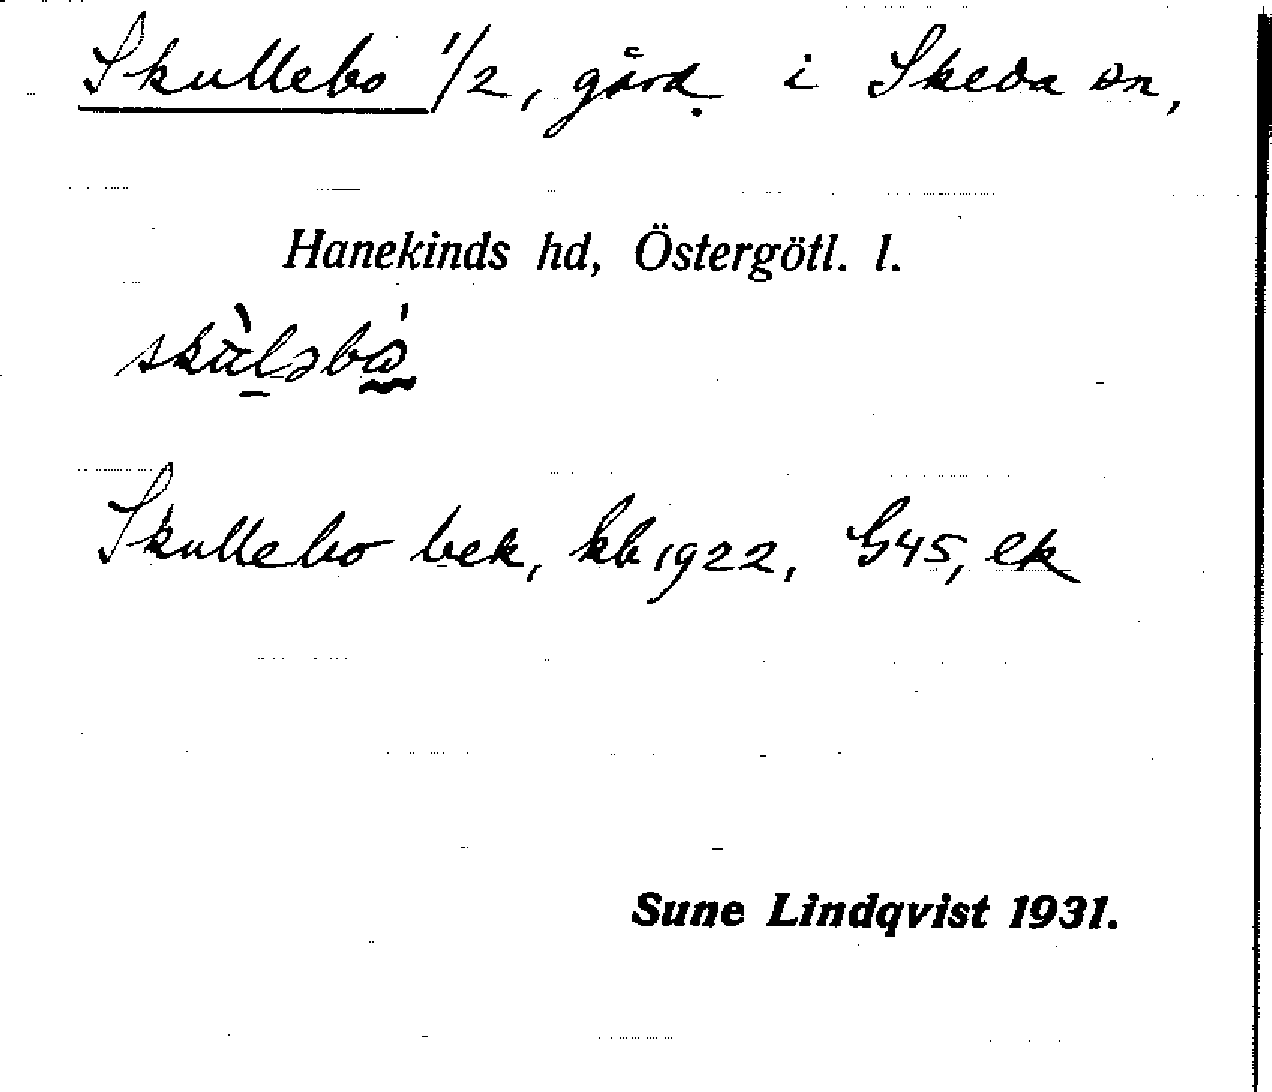 Skullebo 1/2, gård i Skeda sn,
Hanekinds hd, Östergötl. l.
Skullebo bek, kb 1922, G45, ek
Sune Lindqvist 1931.